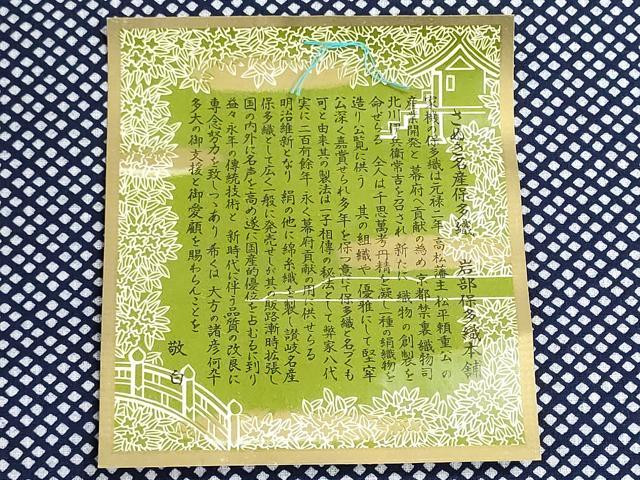 さぬき名産保多織　岩部保多織本舗
家機の保多織は元禄二年 高松藩主 松平頼重公の
産業開発と 幕府へ貢献の為め 京都禁裏織物司
北川伊兵衛常吉を召され 新たに 織物の創製を
命ぜらる 仝人は千思萬考丹精を凝し一種の絹織物を
造り公覧に供う 其の組織や 優雅にして堅牢
公深く嘉賞せられ多年を保つ意にて保多織と名づくも
可と由来其の製法は一子相傳の秘法として弊家八代
実に二百有餘年 永く幕府貢献の用に供せらる
明治維新となり 絹の他に綿糸織を製し 讃岐名産
保多織として広く一般に発売せしが其の販路漸時拡張し
国の内外に名声を高め遂に国産的優位を占むるに到り
益々永年の傳統技術と 新時代に伴う品質の改良に
専念努力を致しつゝあり 希くは大方の諸彦何卒
多大の御支援と御愛顧を賜わらんことを
敬白